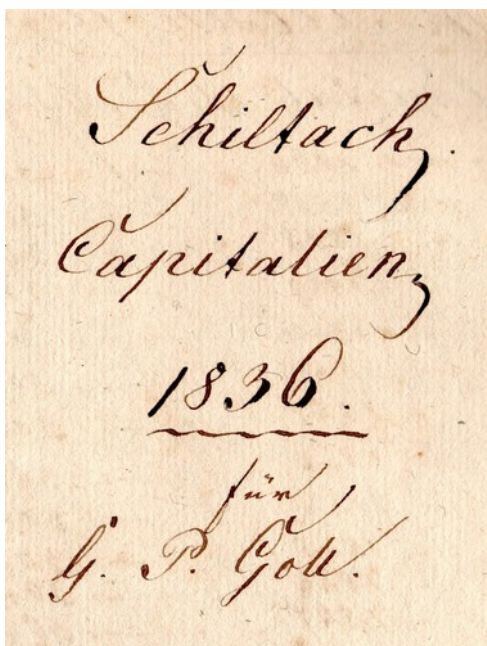 Schiltach.
Capitalien
1836.
für
G. P. Goll.